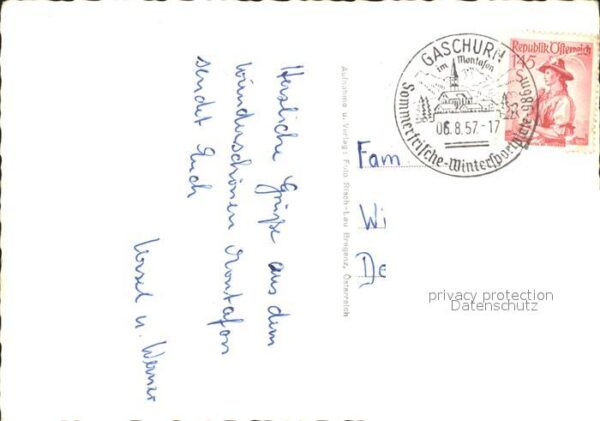 Herzliche Grüße aus dem
wunderschönen Montafon
sendet Euch
Ursel u. Werner
Aufnahme u. Verlag: Foto Risch-Lau Bregenz, Österreich
GASCHURN
im Montafon
06.8.57.-17
Sommerfrische-Wintersportplatz
Republik Österreich
145
Fam
Wi
De
privacy protection
Datenschutz